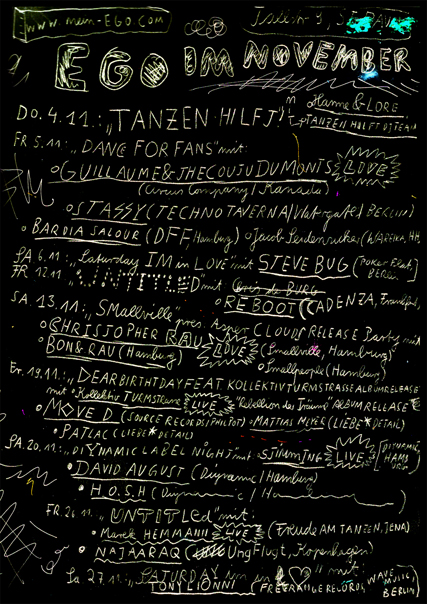 www.mein-EGO.com
EGO IM NOVEMBER
Hanne & LORE
DO. 4.11.: „TANZEN HILFT!" m
TANZEN HILFT
FR 5.11: „DANCE FOR FANS" mit:
GUILLAUME & THE COUTU DUMONTS LIVE
(Circus Company / Kanada)
STASSY (TECHNO TAVERNA / Watergate / BERLIN)
BARDIA SALOUR (DFF Hamburg)
SA 6.11: „Saturday IM in LOVE" mit STEVE BUG (Poker Flat, Berlin)
FR 12.11 „UNTITLED" mit
REBOOT (CADENZA, Frankfurt)
SA. 13.11: „Smallville" pres. CLOUDS RELEASE Party mit
CHRISTOPHER RAU LIVE (Smallville, Hamburg)
BON & RAU (Hamburg) Smallpeople (Hamburg)
Fr. 19.11: „DEAR BIRTHDAY FEAT KOLLEKTIV TURMSTRASSE ALBUM RELEASE
mit Kollektiv TURMSTRASSE LIVE "Rebellion der Träumer" ALBUM RELEASE
MOVE D (SOURCE RECORDS / PHILPOT) MATTIAS MEYER (LIEBE*DETAIL)
PATLAC (LIEBE*DETAIL)
SA. 20.11: „DIYNAMIC LABEL NIGHT" mit STIMMING LIVE [DIYNAMIC, HAMBURG]
DAVID AUGUST (Diynamic / Hamburg)
H.O.S.H (Diynamic / Ham
FR. 26.11 „UNTITLED" mit:
Marek HEMMANN LIVE (Freude AM TANZEN, JENA)
NAJAARAQ (UngFlugt, Kopenhagen)
Sa 27.11 „SATURDAY im in ♡" mit:
TONY LIONNI (FREERANGE RECORDS, WAVE MUSIC, BERLIN)